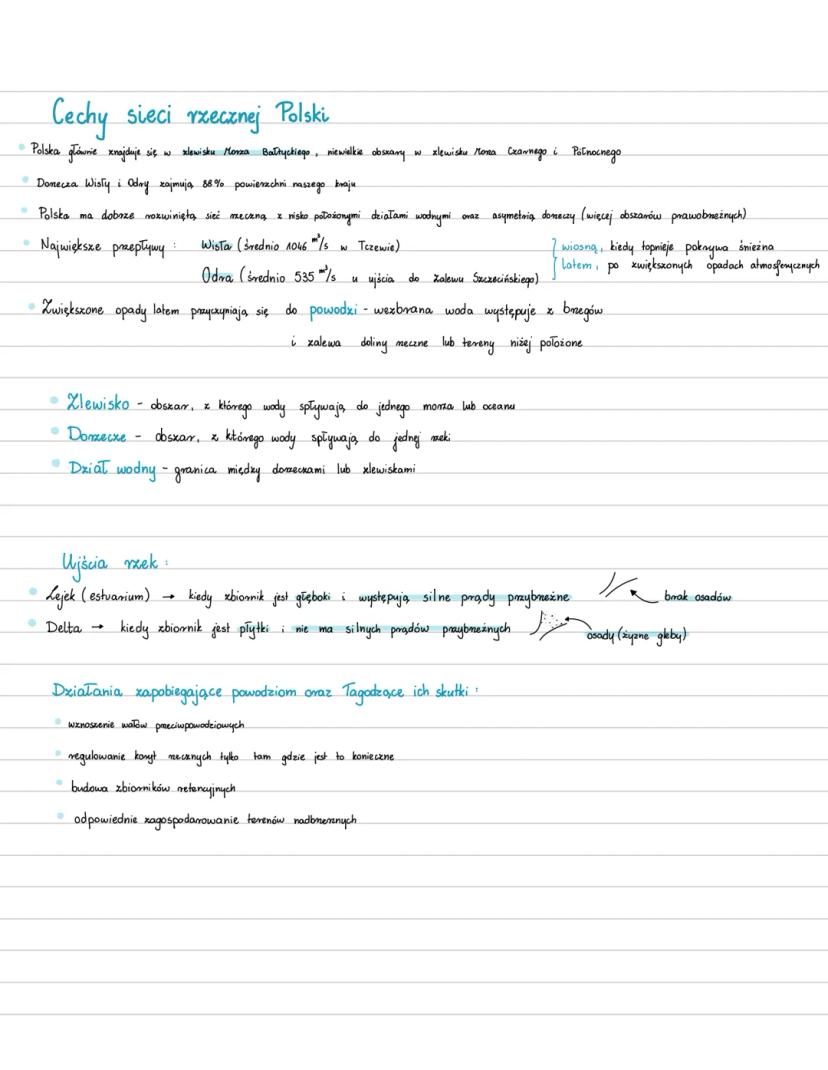 Cechy sieci rzecznej Polski
Polska głównie znajduje się w zlewisku Morza Bałtyckiego, niewielkie obszary w zlewisku Morza Czarnego i Północnego
Dorzecza Wisły i Odry zajmują 88% powierzchni naszego kraju
Polska ma dobrze rozwiniętą sieć rzeczną z nisko położonymi działami wodnymi oraz asymetrią dorzeczy (więcej obszarów prawobrzeżnych)
Największe przepływy: Wisła (średnio 1046 m³/s w Tczewie) wiosną, kiedy topnieje pokrywa śnieżna
Odra (średnio 535 m³/s u ujścia do Zalewu Szczecińskiego) latem, po zwiększonych opadach atmosferycznych
Zwiększone opady latem przyczyniają się do powodzi - wezbrana woda występuje z brzegów
i zalewa doliny rzeczne lub tereny niżej położone
Zlewisko - obszar, z którego wody spływają do jednego morza lub oceanu
Dorzecze - obszar, z którego wody spływają do jednej rzeki
Dział wodny - granica między dorzeczami lub zlewiskami
Ujścia rzek:
Lejek (estuarium) → kiedy zbiornik jest głęboki i występują silne prądy przybrzeżne brak osadów
Delta → kiedy zbiornik jest płytki i nie ma silnych prądów przybrzeżnych osady (żyzne gleby)
Działania zapobiegające powodziom oraz łagodzące ich skutki:
wznoszenie wałów przeciwpowodziowych
regulowanie koryt rzecznych tylko tam gdzie jest to konieczne
budowa zbiorników retencyjnych
odpowiednie zagospodarowanie terenów nadbrzeżnych